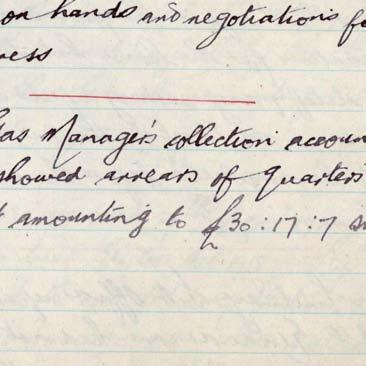 on hands and negotiations f
ress
as Manager's collection accoun
showed arrears of Quarters
amounting to £30:17:7